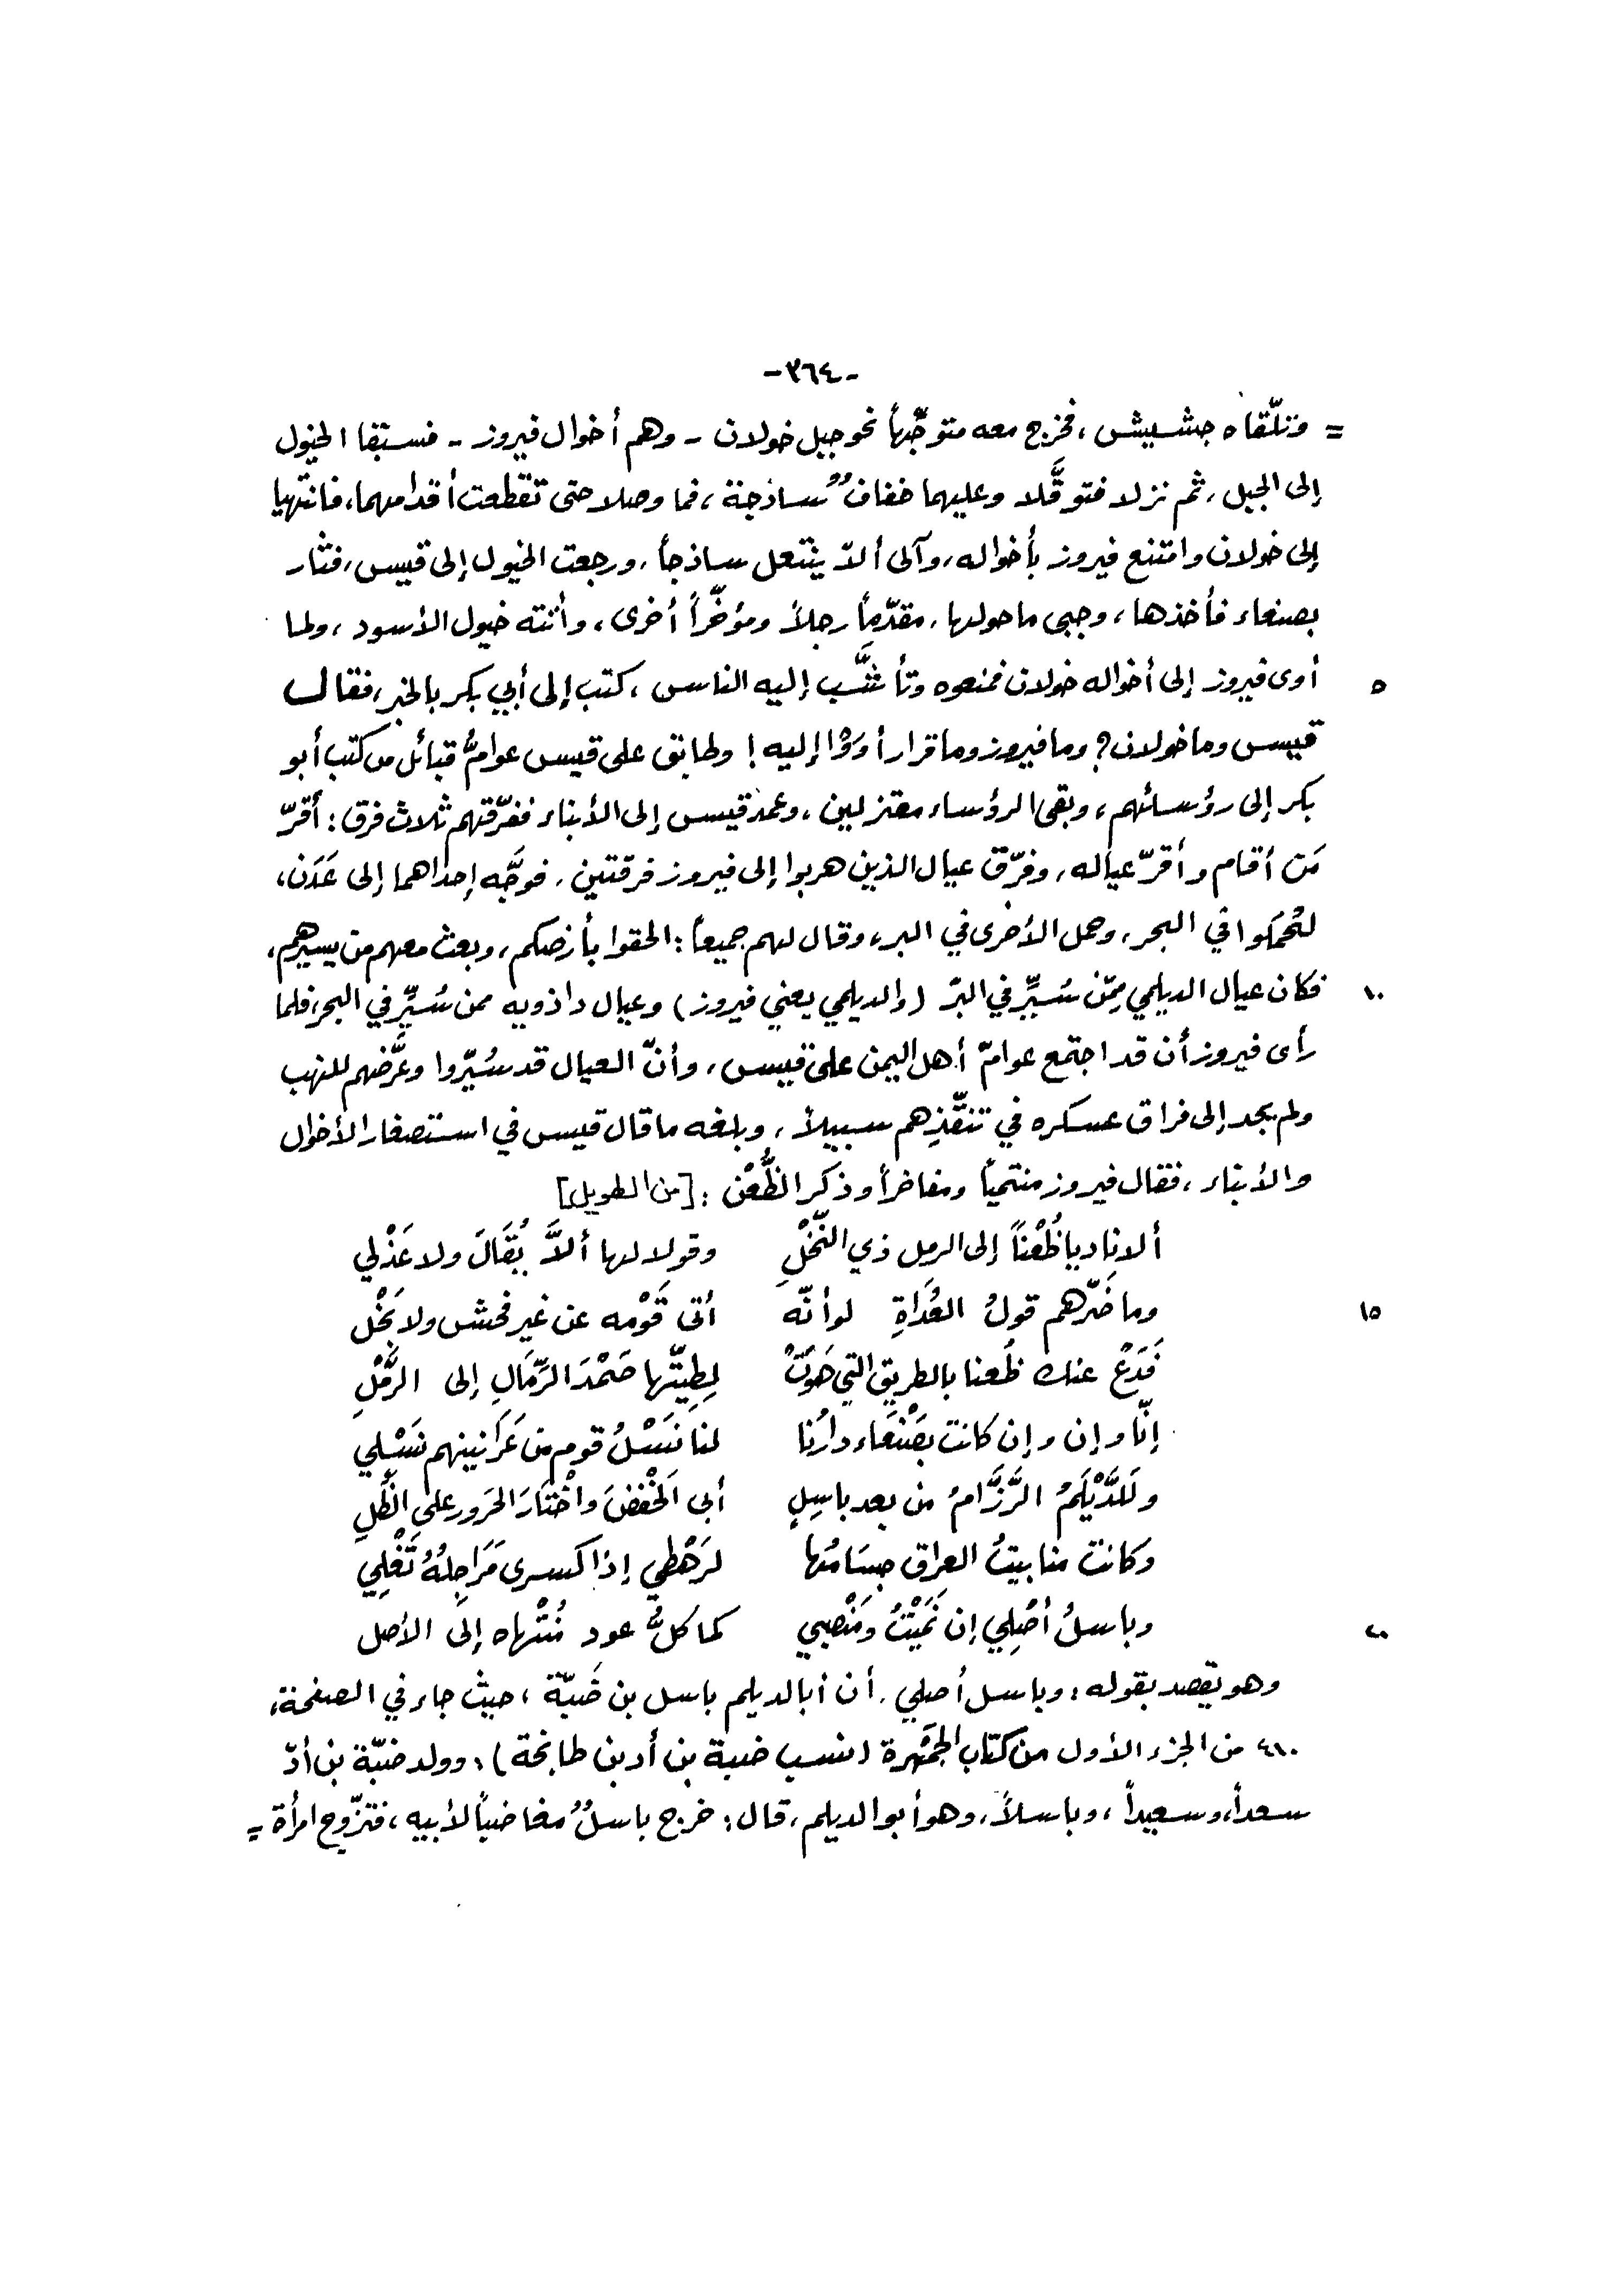 -٣٦٤-
= وتلقّاه جشيش، فخرج معه متوجّهاً نحو جبل خولان - وهم أخوال فيروز - فسبقا الخيول
إلى الجبل، ثم نزلا فتوقَّلا وعليهما خفافٌ ساذجة، فما وصلا حتى تقطعت أقدامهما، فانتهيا
إلى خولان وامتنع فيروز بأخواله، وآلى ألاّ ينتعل ساذجاً، ورجعت الخيول إلى قيس، فثار
بصنعاء فأخذها، وجبى ما حولها، مقدّماً رجلاً ومؤخّراً أخرى، وأتته خيول الأسود، ولما
٥ أوى فيروز إلى أخواله خولان فمنعوه وتأشَّب إليه الناس، كتب إلى أبي بكر بالخبر، فقال
قيس وما خولان؟ وما فيروز وما قرار أوَوْا إليه! وطابق على قيس عوامُّ قبائل من كتب أبو
بكر إلى رؤسائهم، وبقي الرؤساء معتزلين، وعمد قيس إلى الأبناء ففرّقتهم ثلاث فرق: أقرّ
مَن أقام وأقرّ عياله، وفرّق عيال الذين هربوا إلى فيروز فرقتين، فوجَّه إحداهما إلى عَدَن،
لتُحمَلوا في البحر، وحمل الأخرى في البر، وقال لهم جميعاً: الحقوا بأرضكم، وبعث معهم من يسيرهم،
١٠ فكان عيال الديلمي مِمّن سُيِّر في البرّ (والديلمي يعني فيروز) وعيال داذويه ممن سُيِّر في البحر، فلما
رأى فيروز أن قد اجتمع عوامّ أهل اليمن على قيس، وأنّ العيال قد سُيّروا وعرَّضهم للنهب
ولم يجد إلى فراق عسكره في تنقُّذِهم سبيلاً، وبلغه ما قال قيس في استصغار الأخوال
والأبناء، فقال فيروز منتمياً ومفاخراً وذكر الظُّعْن: [من الطويل]
ألا ناديا ظُعْناً إلى الرمل ذي النَّخْلِ وقولا لها ألاَّ يُقَالَ ولا عَذْلي
١٥ وما ضَرّهم قولُ العُدَاةِ لو أنّه أتى قَوْمه عن غير فحش ولا بَخْل
فَدَعْ عنك ظَعنا بالطريق التي هَوَتْ لِطِيّتها صَمْدَ الرِّمَالِ إلى الرَّمْلِ
إنّا وإن وإن كانت بصَنْعَاء دارُنا لنا نَسْلُ قوم من عَرَانينهم نَسْلي
ولَلدَّيْلَمُ الرَّزَّامُ من بعد باسِلٍ أبى الخَفْضَ واخْتَارَ الحَرور على الظِّلِ
وكانت منابيتُ العراق جِسَامُها لرَهْطي إذا كسرى مَرَاجِلُهُ تَغْلِي
٢٠ وباسلُ أصْلِي إن نَمَيْتُ ومَنْصِبي كما كلُّ عود مُنْتهاه إلى الأصل
وهو يقصد بقوله: وباسل أصلي، أن أبا الديلم باسل بن ضَبّة، حيث جاء في الصفحة،
٤١٠ من الجزء الأول من كتاب الجَمْهرة (نسب ضبة بن أد بن طابخة)، وولد ضبّة بن أدّ
سعداً، وسعيداً، وباسلاً، وهو أبو الديلم، قال: خرج باسلٌ مغاضباً لأبيه، فتزّوج امرأة =